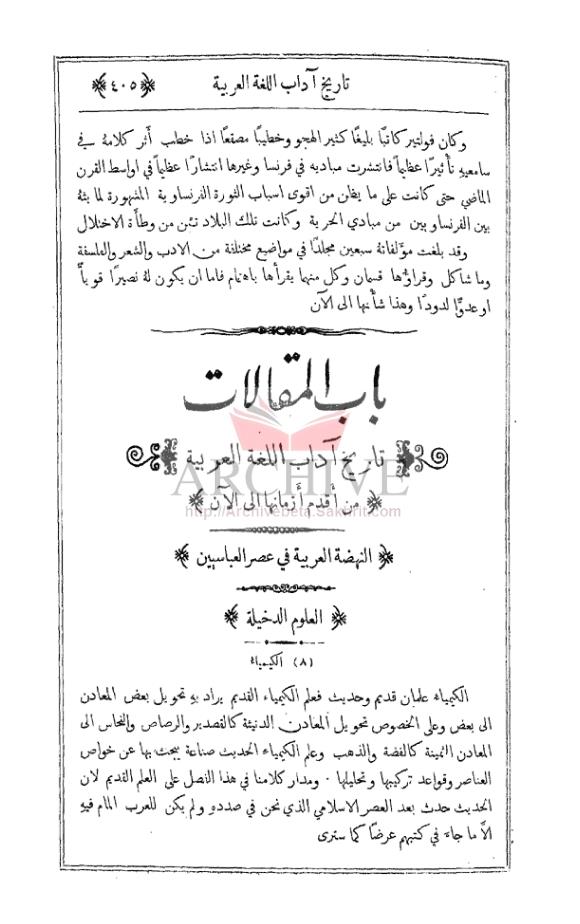 تاريخ آداب اللغة العربية
﴿٤٠٥﴾
وكان فولتير كاتبًا بليغًا كثير الهجو وخطيبًا مصقعًا اذا خطب أثر كلامهُ في
سامعيهِ تأثيرًا عظيمًا فانتشرت مباديهِ في فرنسا وغيرها انتشارًا عظيمًا في اواسط القرن
الماضي حتى كانت على ما يظن من اقوى اسباب الثورة الفرنساوية المشهورة لما بثهُ
بين الفرنساويين من مبادي الحرية وكانت تلك البلاد تئن من وطأة الاختلال
وقد بلغت مؤلفاتهُ سبعين مجلدًا في مواضيع مختلفة من الادب والشعر والفلسفة
وما شاكل وقراؤها قسمان وكل منهما يقرأها باهتمام فاما ان يكون لهُ نصيرًا قويًّا
او عدوًّا لدودًا وهذا شأنها الى الآن
باب المقالات
تاريخ آداب اللغة العربية
ARCHIVE
﴿من أقدم أزمانها الى الآن﴾
http://Archivebeta.Sakhrit.com
﴿النهضة العربية في عصر العباسيين﴾
﴿العلوم الدخيلة﴾
(٨) الكيمياء
الكيمياء علمان قديم وحديث فعلم الكيمياء القديم يراد بهِ تحويل بعض المعادن
الى بعض وعلى الخصوص تحويل المعادن الدنيئة كالقصدير والرصاص والنحاس الى
المعادن الثمينة كالفضة والذهب وعلم الكيمياء الحديث صناعة يبحث بها عن خواص
العناصر وقواعد تركيبها وتحليلها . ومدار كلامنا في هذا الفصل على العلم القديم لان
الحديث حدث بعد العصر الاسلامي الذي نحن في صددهِ ولم يكن للعرب المام فيهِ
الاَّ ما جاء في كتبهم عرضًا كما سترى